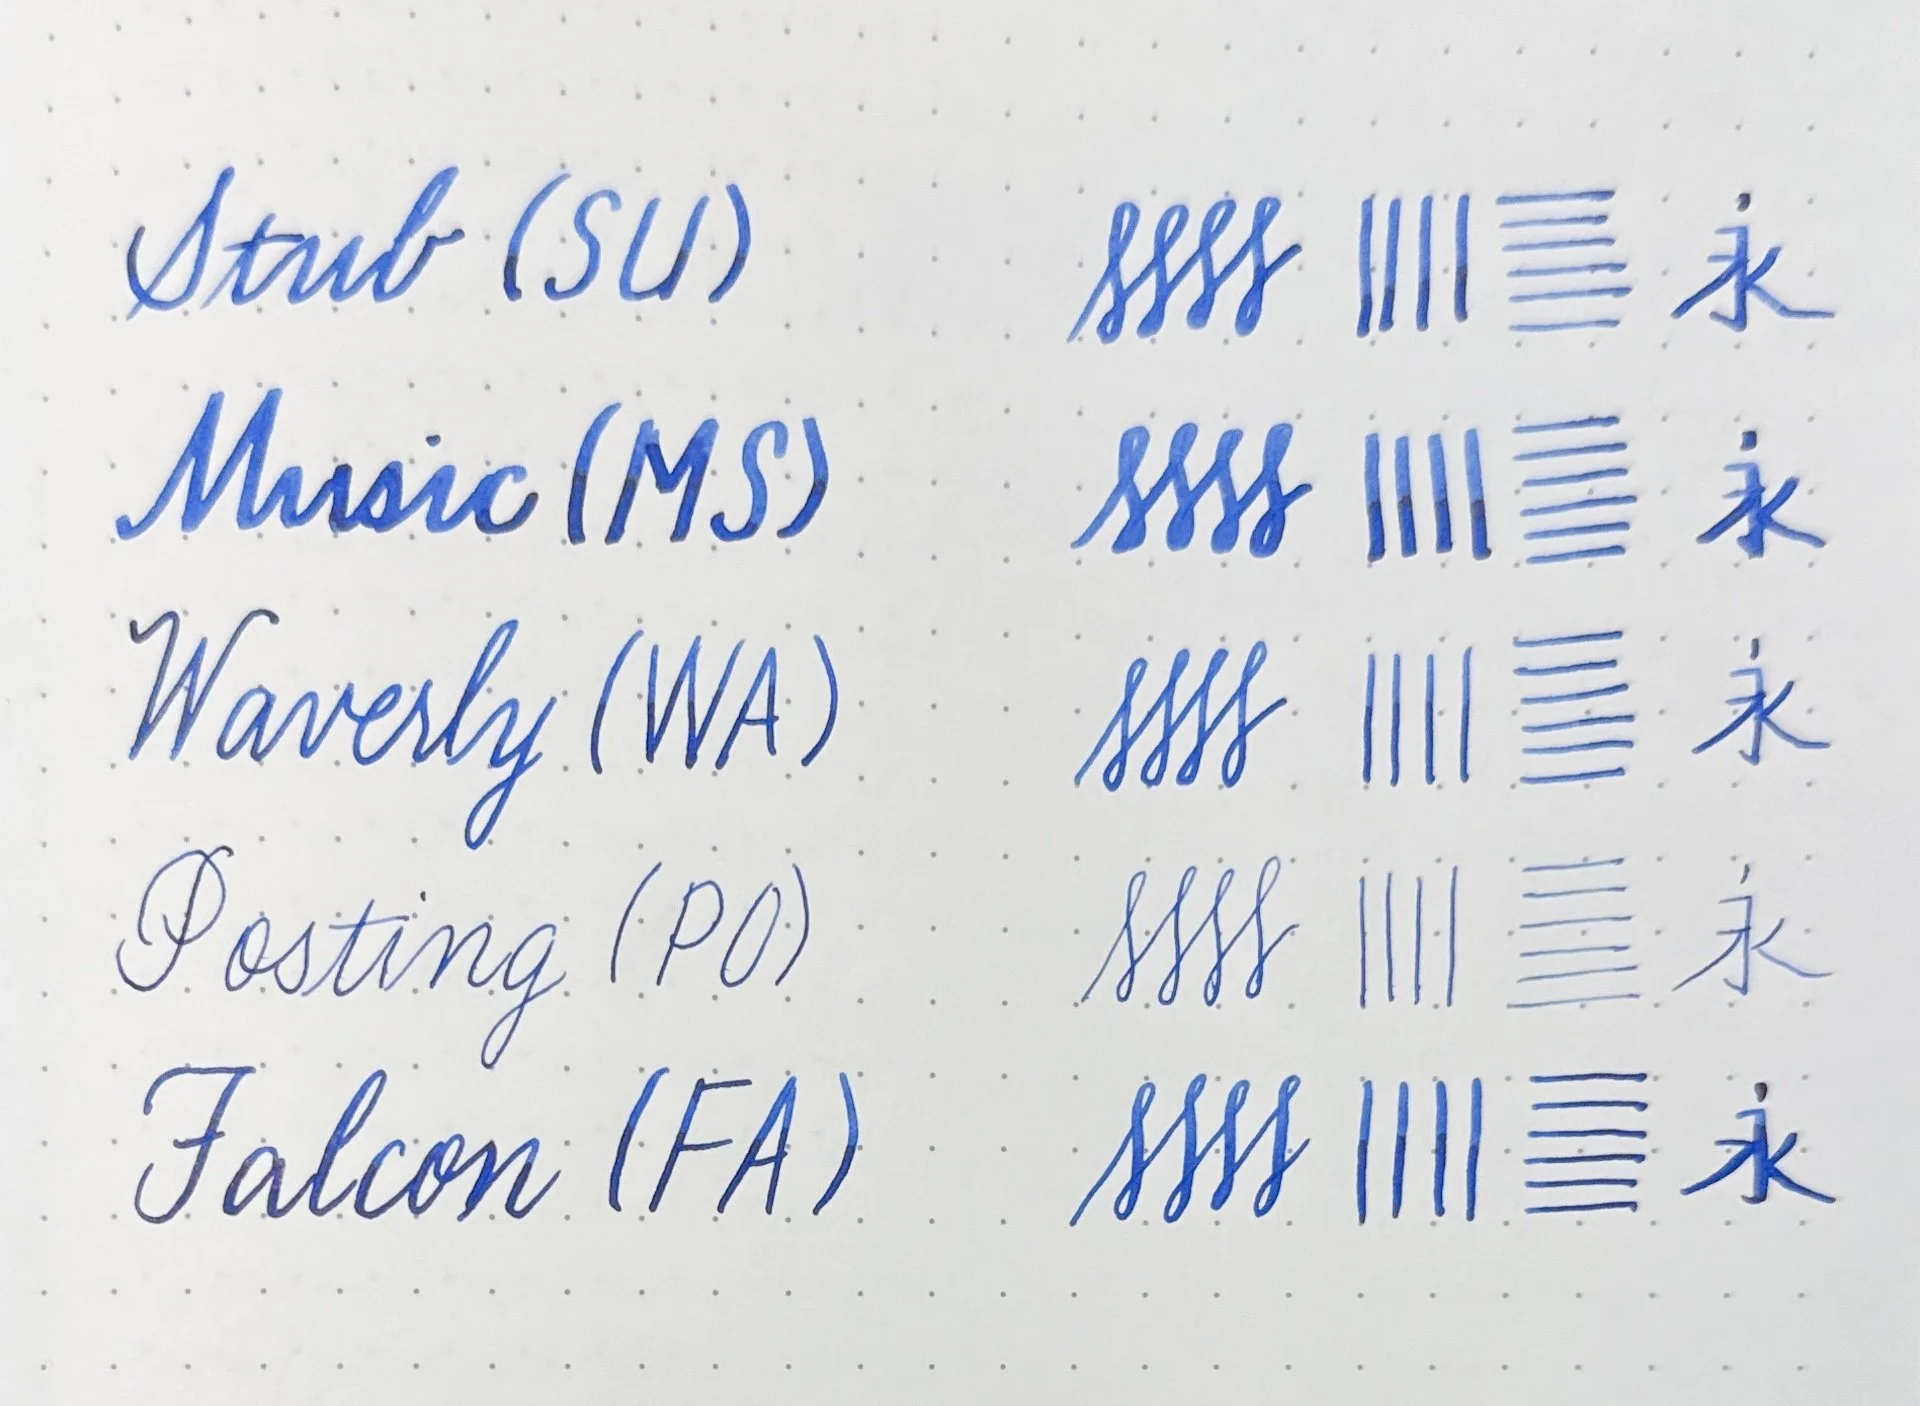 Stub (SU) 永
Music (MS) 永
Waverly (WA) 永
Posting (PO) 永
Falcon (FA) 永